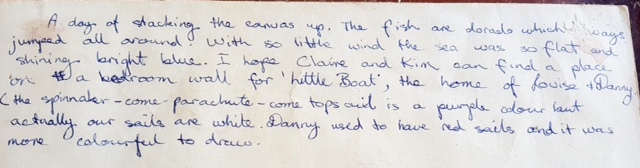 A day of stacking the canvas up. The fish are dorado which always
jumped all around! With so little wind the sea was so flat and
shining bright blue. I hope Claire and Kim can find a place
on a bedroom wall for 'Little Boat', the home of Louise + Danny.
(the spinnaker-come-parachute-come topsail is a purple colour but
actually our sails are white. Danny used to have red sails and it was
more colourful to draw.